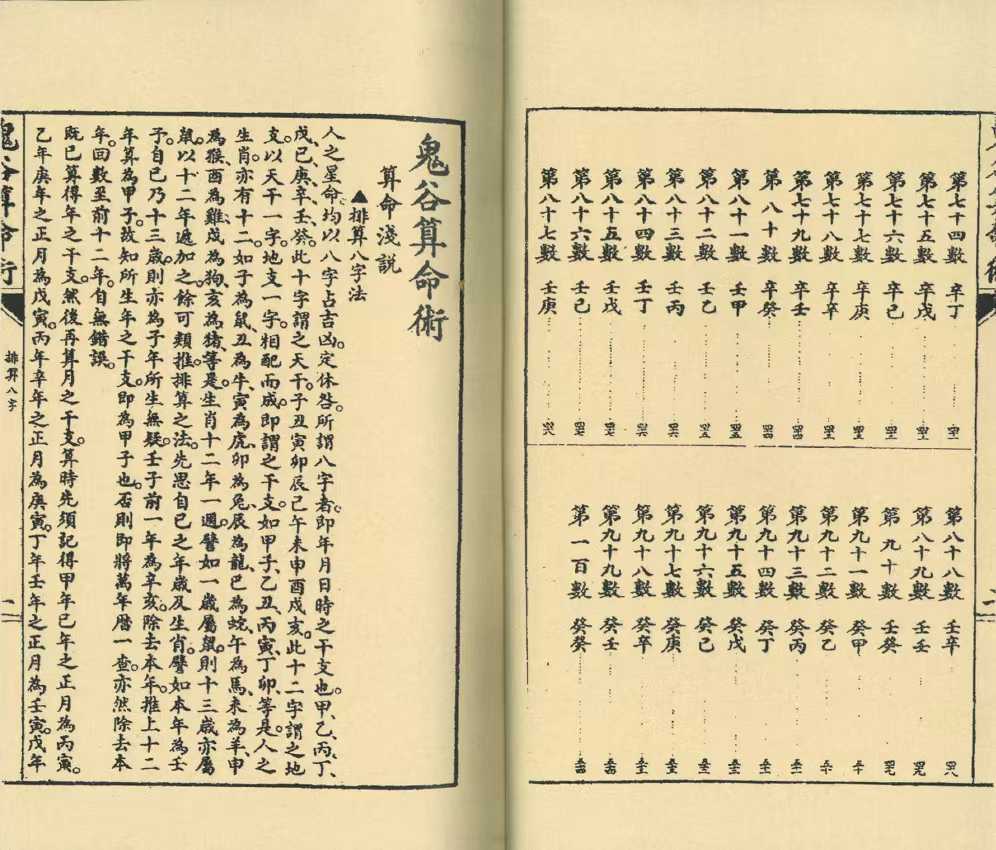 第七十四數 辛丁 罒二
第七十五數 辛戊 罒二
第七十六數 辛己 罒三
第七十七數 辛庚
第七十八數 辛辛
第七十九數 辛壬 罒四
第八十數 辛癸 罒四
第八十一數 壬甲 罒五
第八十二數 壬乙 罒五
第八十三數 壬丙 罒六
第八十四數 壬丁 罒六
第八十五數 壬戊 罒七
第八十六數 壬己 罒七
第八十七數 壬庚 罒八
第八十八數 壬辛 罒八
第八十九數 壬壬 罒九
第九十數 壬癸 罒九
第九十一數 癸甲 五十
第九十二數 癸乙 五十
第九十三數 癸丙 五十一
第九十四數 癸丁
第九十五數 癸戊
第九十六數 癸己
第九十七數 癸庚
第九十八數 癸辛
第九十九數 癸壬 五十四
第一百數 癸癸 五十四
鬼谷算命術
算命淺説
▲排算八字法
人之星命、均以八字占吉凶定休咎。所謂八字者、即年月日時之干支也。甲、乙、丙、丁、
戊、己、庚、辛、壬、癸。此十字謂之天干。子丑寅卯辰巳午未申酉戌亥。此十二字謂之地
支。以天干一字。地支一字。相配而成。即謂之干支。如甲子、乙丑、丙寅、丁卯、等是。人之
生肖。亦有十二。如子為鼠、丑為牛、寅為虎、卯為兔、辰為龍、巳為蛇、午為馬、未為羊、申
為猴、酉為雞、戌為狗、亥為豬、等是。生肖十二年一週。譬如一歲屬鼠。則十三歲亦屬
鼠。以十二年遞加之。餘可類推。排算之法。先思自己之年歲及生肖。譬如本年為壬
子。自己乃十三歲。則亦為子年所生無疑。壬子前一年為辛亥。除去本年。推上十二
年。算為甲子。故知所生年之干支。即為甲子也。否則即將萬年曆一查。亦然除去本
年。回數至前十二年。自無錯誤。
既已算得年之干支。然後再算月之干支。算時先須記得甲年己年之正月為丙寅。
乙年庚年之正月為戊寅。丙年辛年之正月為庚寅。丁年壬年之正月為壬寅。戊年
鬼谷算命術
排算八字
一